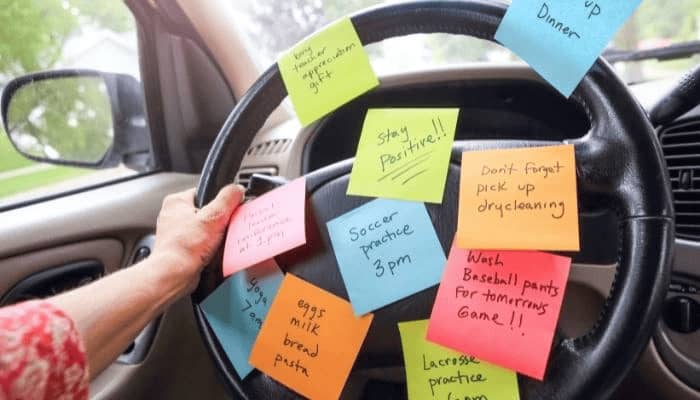 up
Dinner
buy
teacher
appreciation
gift
Stay
Positive!!
Don't forget
pick up
drycleaning
teacher
conference
at 1 pm
Soccer
practice
3pm
Wash
Baseball pants
For tomorrows
Game!!
Yoga
7am
eggs
milk
bread
pasta
Lacrosse
practice